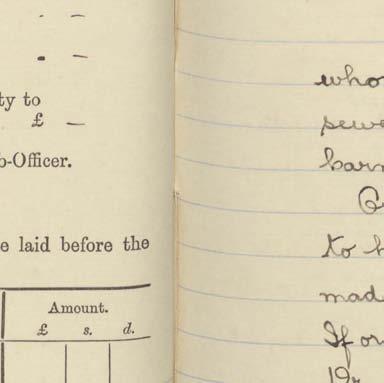 - -
. -
ty to
£ -
b-Officer.
e laid before the
Amount.
£ s. d.
who
sewe
barn
to h
mad
If or